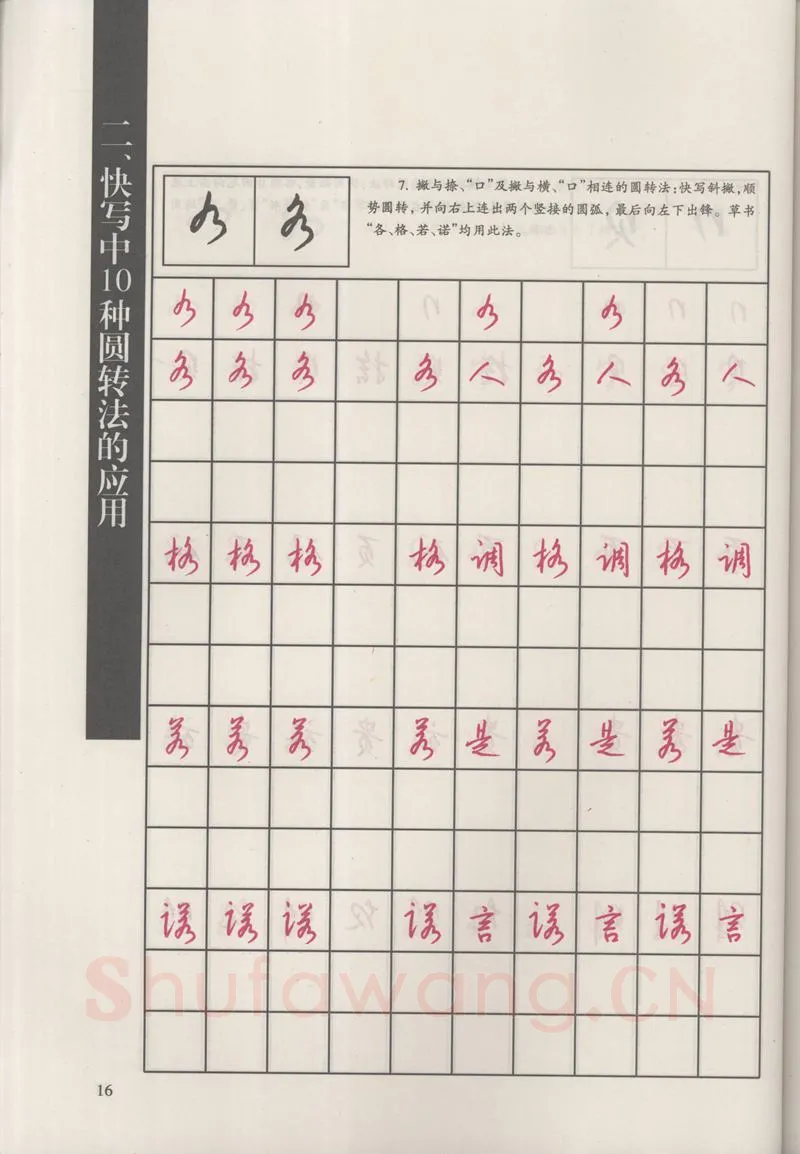 二、快写中10种圆转法的应用
各
7. 撇与捺、“口”及撇与横、“口”相连的圆转法：快写斜撇，顺
势圆转，并向右上连出两个竖接的圆弧，最后向左下出锋。草书
“各、格、若、诺”均用此法。
各 各 各 各 人 各 人 各 人
格 格 格 格 调 格 调 格 调
若 若 若 若 是 若 是 若 是
诺 诺 诺 诺 言 诺 言 诺 言
Shufawang.CN
16